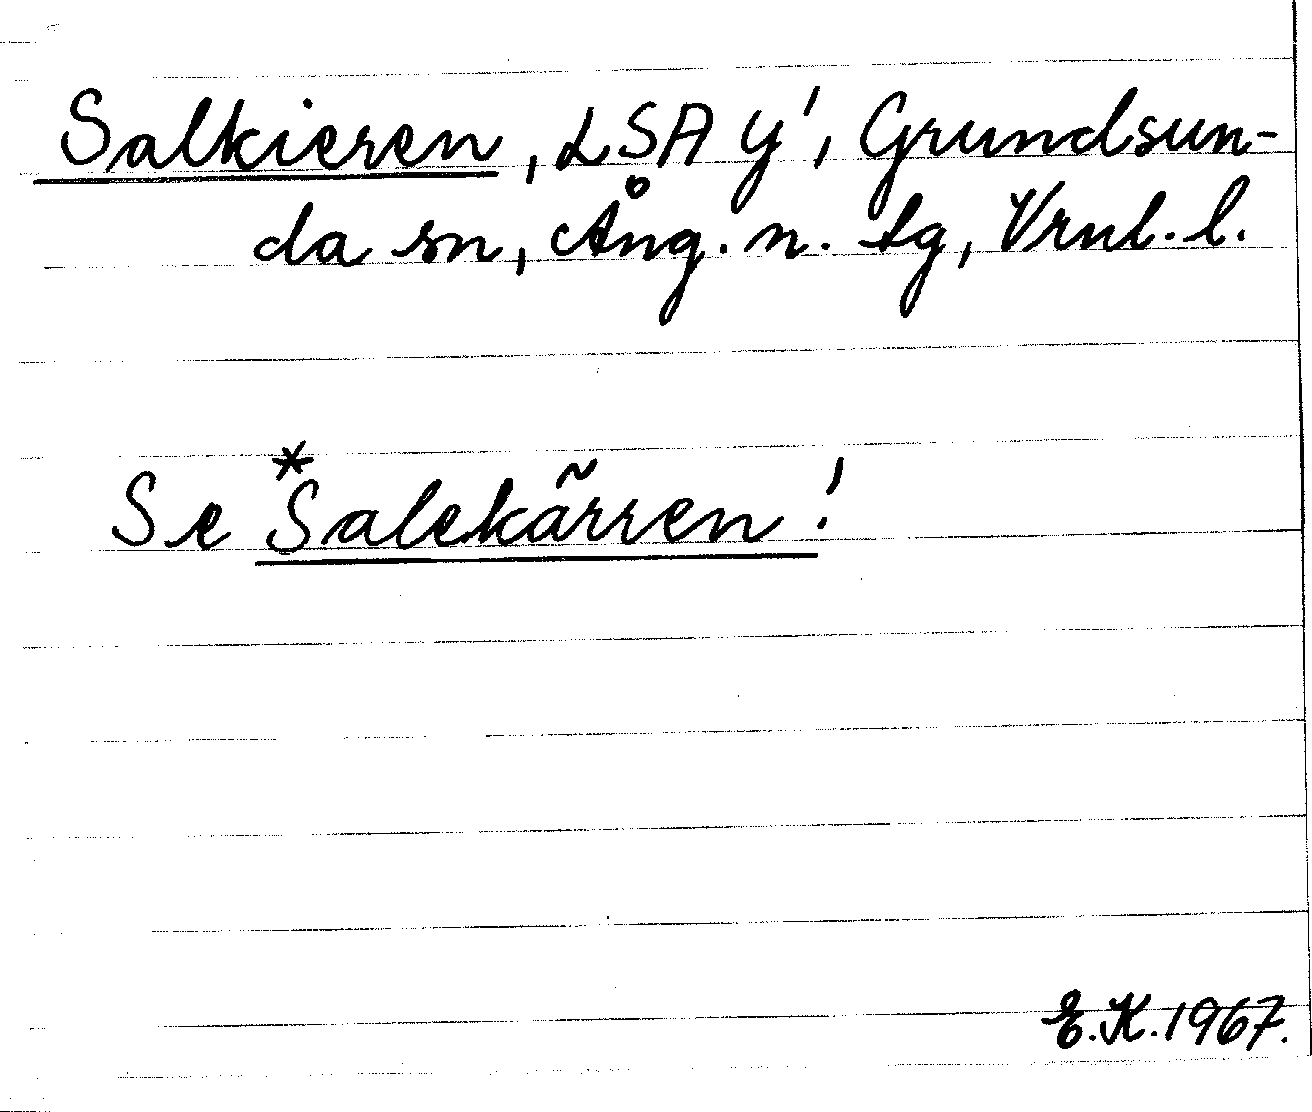 Salkieren, LSA Y', Grundsun-
da sn, Ång. n. tg, Vrnl. l.
Se *Salekärren!
E.K. 1967.